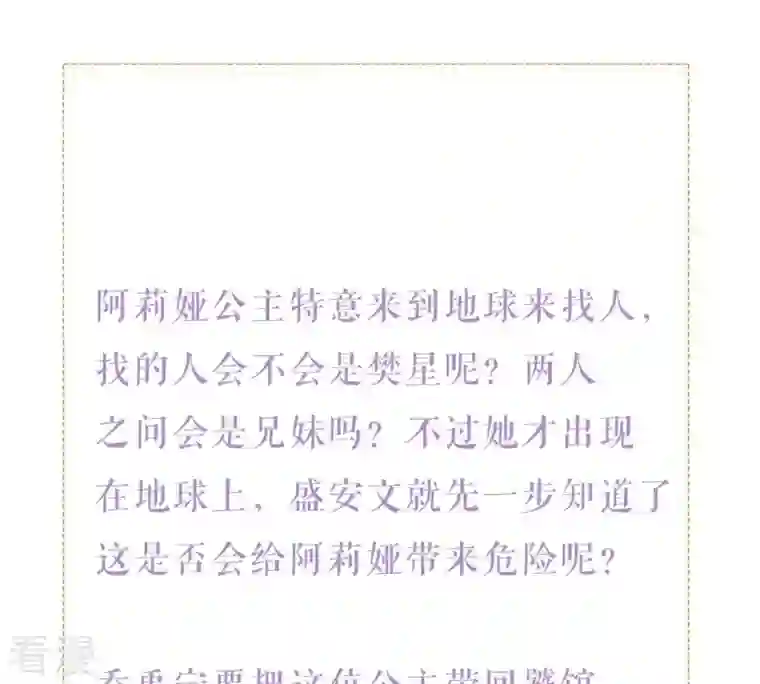 阿莉娅公主特意来到地球来找人，
找的人会不会是樊星呢？两人
之间会是兄妹吗？不过她才出现
在地球上，盛安文就先一步知道了
这是否会给阿莉娅带来危险呢？
看漫
要把这位公主带回